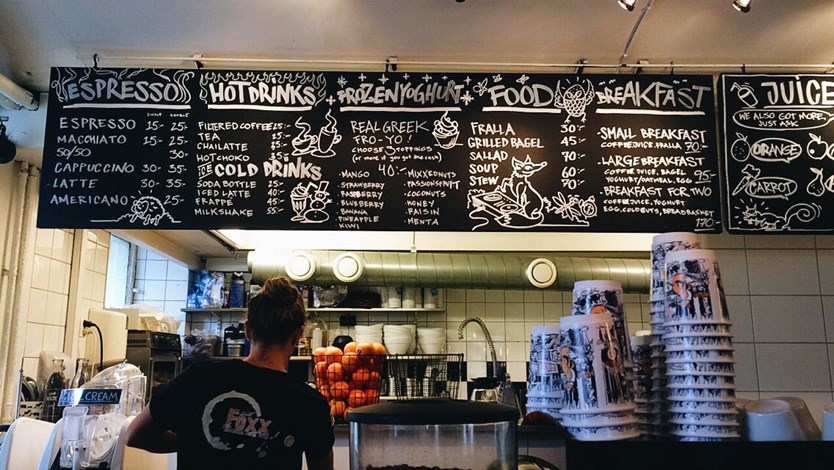 ESPRESSO
SINGLE DOUBLE
ESPRESSO 15- 25-
MACCHIATO 15- 25-
50/50 30-
CAPPUCCINO 30- 35-
LATTE 30- 35-
AMERICANO 25-
HOT DRINKS
FILTERED COFFEE 25-
TEA 25-
CHAILATTE 35-
HOT CHOKO 35-
ICE COLD DRINKS
SODA BOTTLE 25-
ICED LATTE 40-
FRAPPE 45-
MILKSHAKE 55-
FROZEN YOGHURT
REAL GREEK
FRO-YO!
CHOOSE 3 TOPPINGS
(or more if you got the cash)
40:-
• MANGO
• STRAWBERRY
• RASPBERRY
• BLUEBERRY
• BANANA
• PINEAPPLE
• KIWI
• MIXXEDNUTS
• PASSIONFRUIT
• COCONUTS
• HONEY
• RAISIN
• MENTA
FOOD
FRALLA 30:-
GRILLED BAGEL 45-
SALLAD 70-
SOUP 60:-
STEW 70:-
BREAKFAST
• SMALL BREAKFAST
COFFEE, JUICE, FRALLA 70:-
• LARGE BREAKFAST
COFFEE, JUICE, BAGEL
YOGHURT/NATURAL, EGG 95-
• BREAKFAST FOR TWO
COFFEE, JUICE, YOGHURT
EGG, COLD CUTS, BREAD BASKET
170-
JUICE
WE ALSO GOT MORE,
JUST ASK
ORANGE
CARROT
ICE CREAM
FoXX